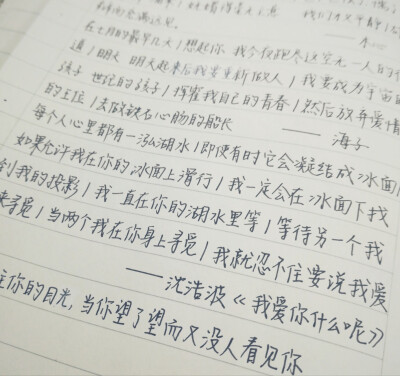 我们才平静
在七月的最早几天/想起你,我今夜跑尽这空无一人的街
道/明天 明天起来后我要重新做人/我要成为宇宙的
孩子 世纪的孩子/挥霍我自己的青春/然后放弃爱情
的王位/去做铁石心肠的船长
——海子
每个人心里都有一泓湖水/即使有时它会凝结成冰面
如果允许我在你的冰面上滑行/我一定会在冰面下找
到我的投影/我一直在你的湖水里等/等待另一个我
来寻觅/当两个我在你身上寻觅/我就忍不住要说我爱
——沈浩波《我爱你什么呢》
住你的目光,当你望了望而又没人看见你